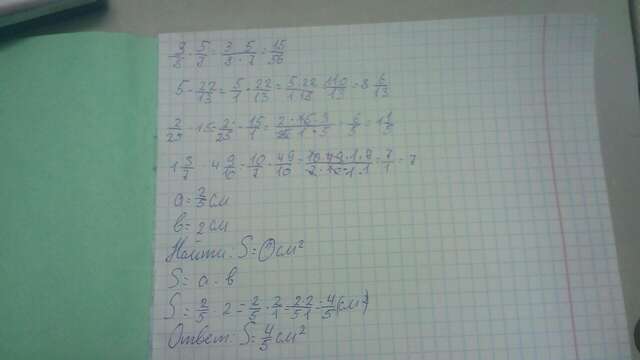 3/8 · 5/7 = 3 · 5 / 8 · 7 = 15/56
5 · 22/13 = 5/1 · 22/13 = 5·22 / 1·13 = 110/13 = 8 6/13
2/25 · 15 = 2/25 · 15/1 = 2 · 15 · 3 / 25 · 1 · 5 = 6/5 = 1 1/5
1 3/7 · 4 9/10 = 10/7 · 49/10 = 10 · 49 · 1 · 7 / 7 · 10 · 1 · 1 = 7/1 = 7
a = 2/5 см
b = 2 см
Найти: S = ? см²
S = a · b
S = 2/5 · 2 = 2/5 · 2/1 = 2·2 / 5·1 = 4/5 (см²)
Ответ: S = 4/5 см²